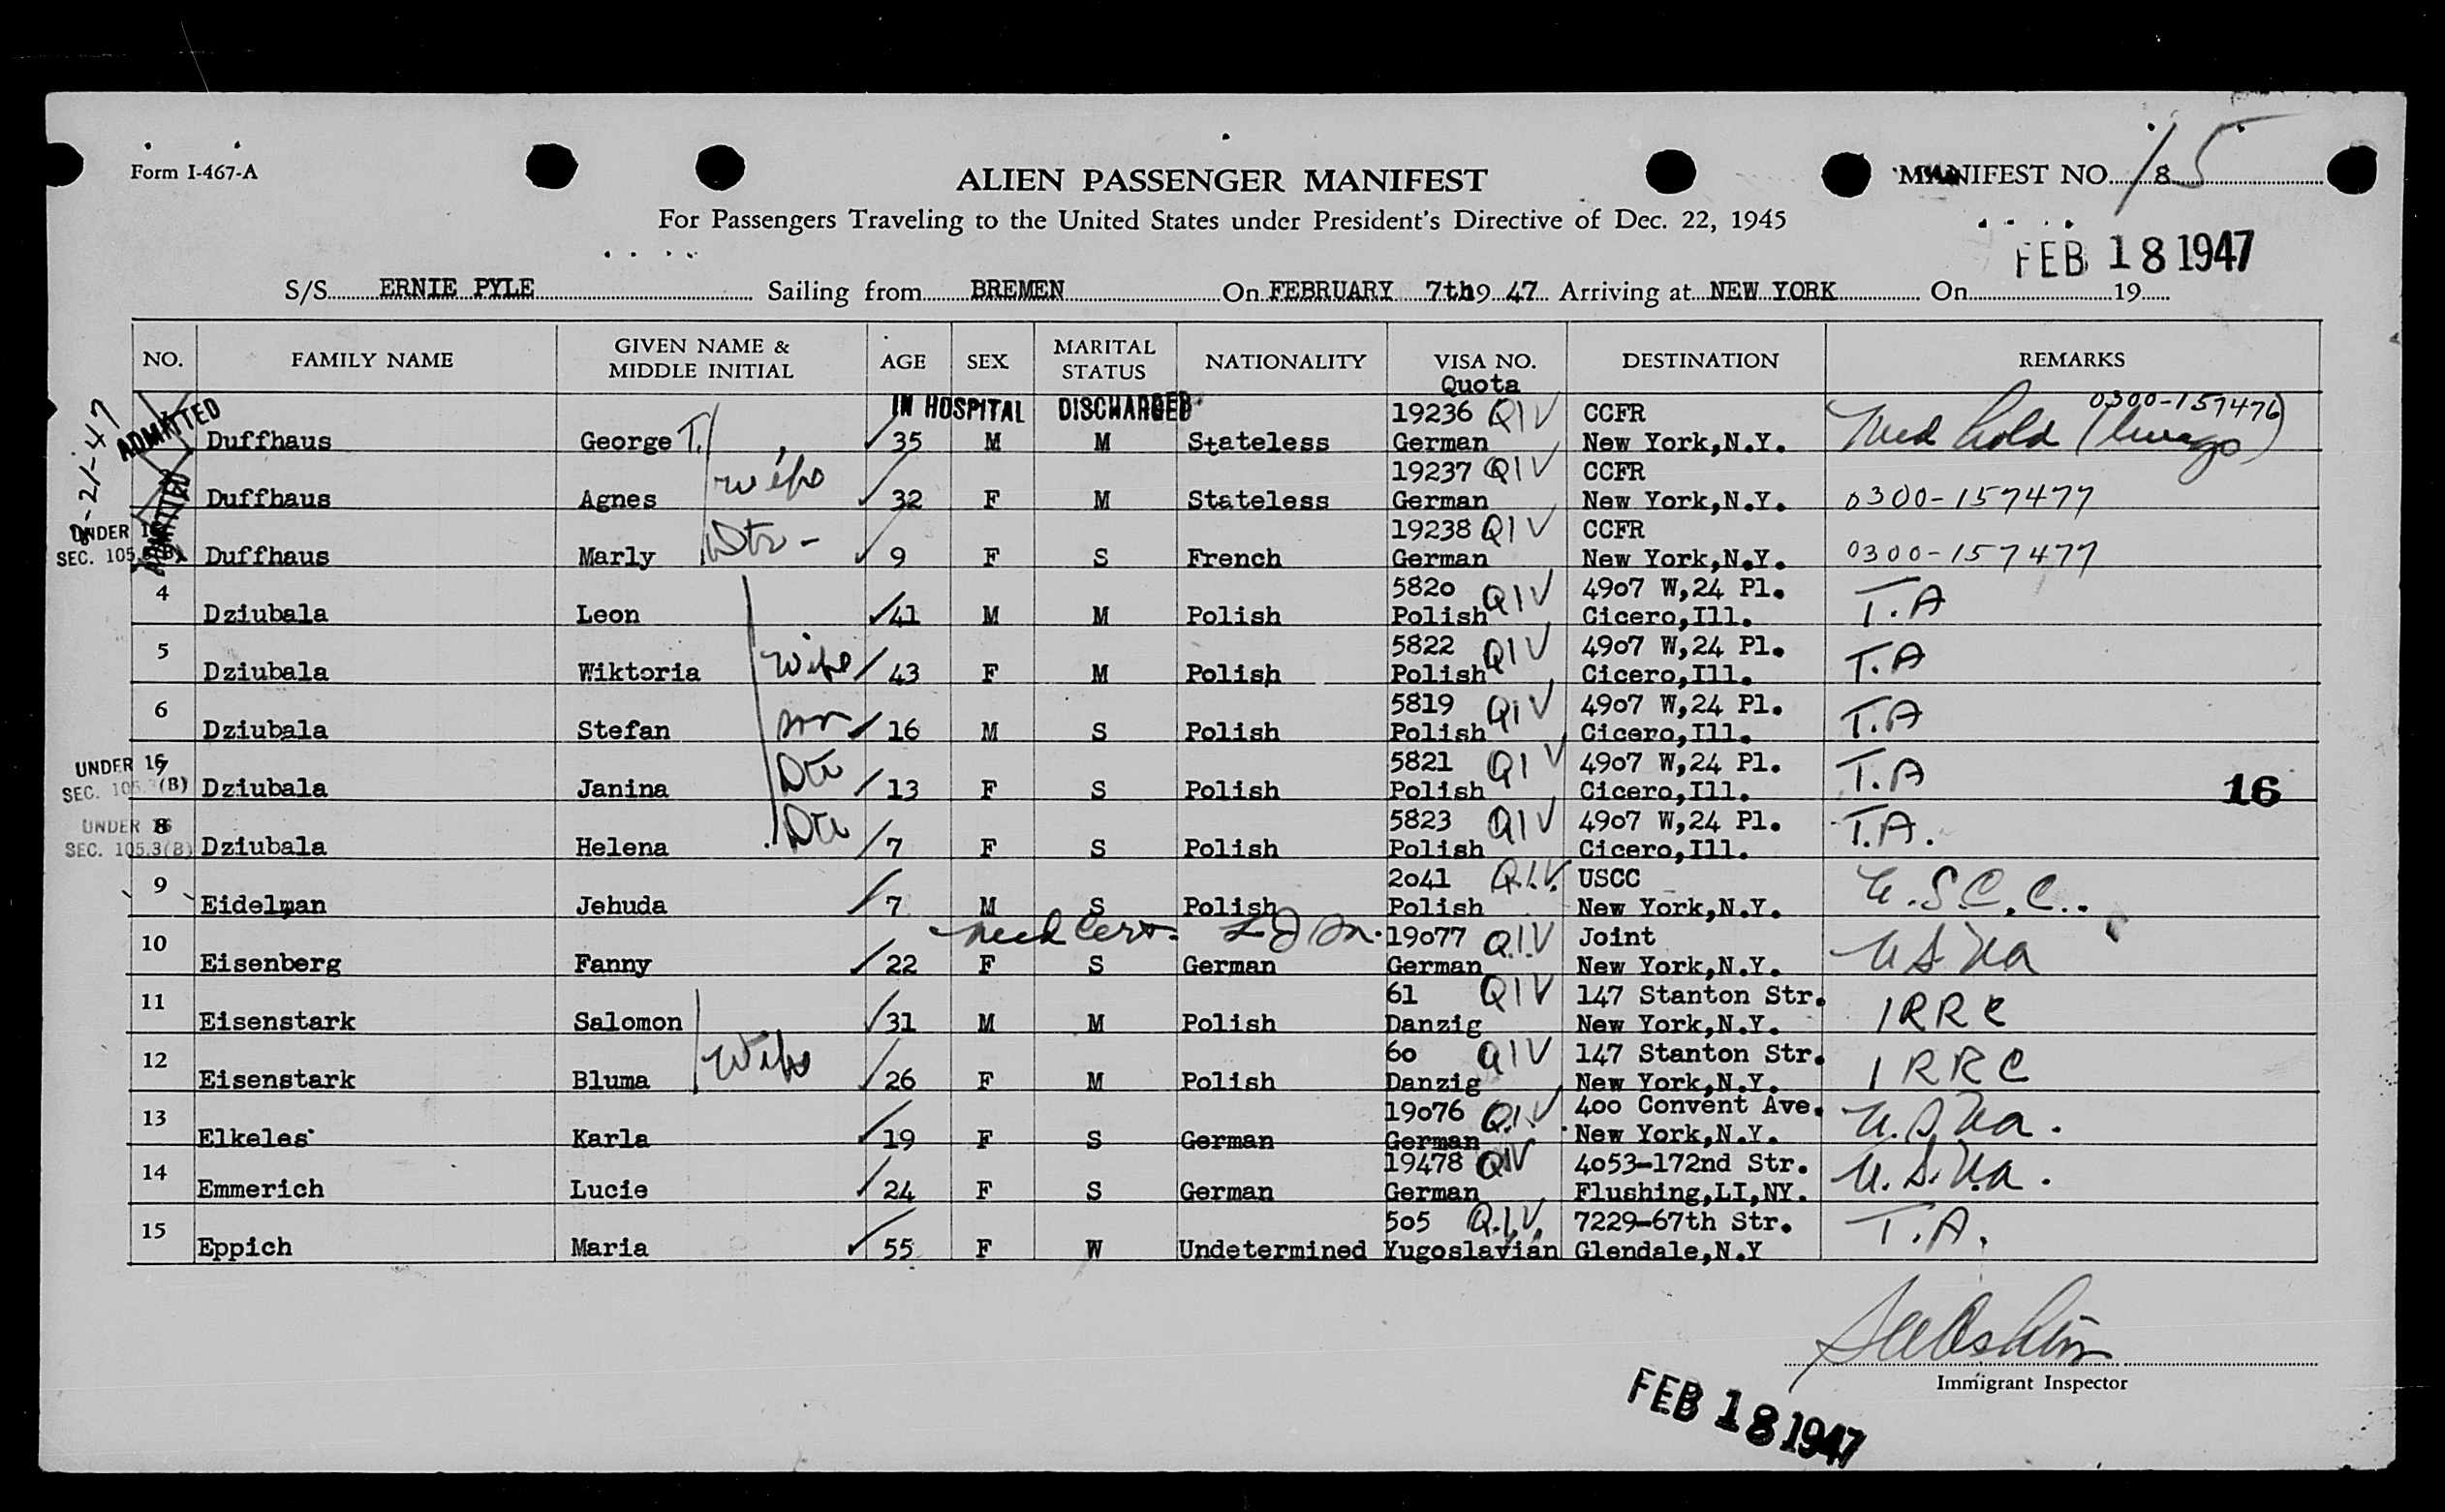 Form I-467-A
ALIEN PASSENGER MANIFEST
MANIFEST NO. 8 15
For Passengers Traveling to the United States under President's Directive of Dec. 22, 1945
FEB 18 1947
S/S ERNIE PYLE Sailing from BREMEN On FEBRUARY 7th 9 47 Arriving at NEW YORK On 19
NO. FAMILY NAME GIVEN NAME & MIDDLE INITIAL AGE SEX MARITAL STATUS NATIONALITY VISA NO. Quota DESTINATION REMARKS
ADMITTED IN HOSPITAL DISCHARGED 19236 QIV CCFR 0300-157476
Duffhaus George T. 35 M M Stateless German New York,N.Y. Med hold (Chicago)
-21-47
wife 19237 QIV CCFR
Duffhaus Agnes 32 F M Stateless German New York,N.Y. 0300-157477
UNDER 16 ADMITTED Dtr - 19238 QIV CCFR
SEC. 105.3(B) Duffhaus Marly 9 F S French German New York,N.Y. 0300-157477
4 5820 QIV 4907 W,24 Pl. T.A
Dziubala Leon 41 M M Polish Polish Cicero,Ill.
5 wife 5822 QIV 4907 W,24 Pl. T.A
Dziubala Wiktoria 43 F M Polish Polish Cicero,Ill.
6 son 5819 QIV 4907 W,24 Pl. T.A
Dziubala Stefan 16 M S Polish Polish Cicero,Ill.
UNDER 16 7 Dtr 5821 QIV 4907 W,24 Pl. T.A
SEC. 105.3(B) Dziubala Janina 13 F S Polish Polish Cicero,Ill. 16
UNDER 16 8 Dtr 5823 QIV 4907 W,24 Pl. T.A.
SEC. 105.3(B) Dziubala Helena 7 F S Polish Polish Cicero,Ill.
9 2041 Q.I.V. USCC U.S.C.C.
Eidelman Jehuda 7 M S Polish Polish New York,N.Y.
10 med cert. 19077 Q.I.V Joint
Eisenberg Fanny 22 F S German German New York,N.Y.
11 61 QIV 147 Stanton Str. IRRC
Eisenstark Salomon 31 M M Polish Danzig New York,N.Y.
12 Wife 60 QIV 147 Stanton Str. IRRC
Eisenstark Bluma 26 F M Polish Danzig New York,N.Y.
13 19076 Q.I.V 400 Convent Ave. U.S.Na.
Elkeles Karla 19 F S German German New York,N.Y.
14 19478 QIV 4053-172nd Str. U.S.Na.
Emmerich Lucie 24 F S German German Flushing,LI,NY.
15 505 Q.I.V. 7229-67th Str. T.A.
Eppich Maria 55 F W Undetermined Yugoslavian Glendale,N.Y
Immigrant Inspector
FEB 18 1947